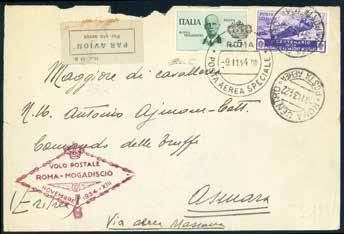 PAR AVION
ITALIA
ROMA
POSTA AEREA SPECIALE
-9.11.34
CENTENARIO
ROMA CENTRO
POSTA AEREA
Maggiore di cavalleria
N.H. Antonio Ajmone-Catt.
Comando delle truppe
VOLO POSTALE
ROMA-MOGADISCIO
NOVEMBRE 1934-XIII
(Eritrea)
Asmara
Via aerea Massaua